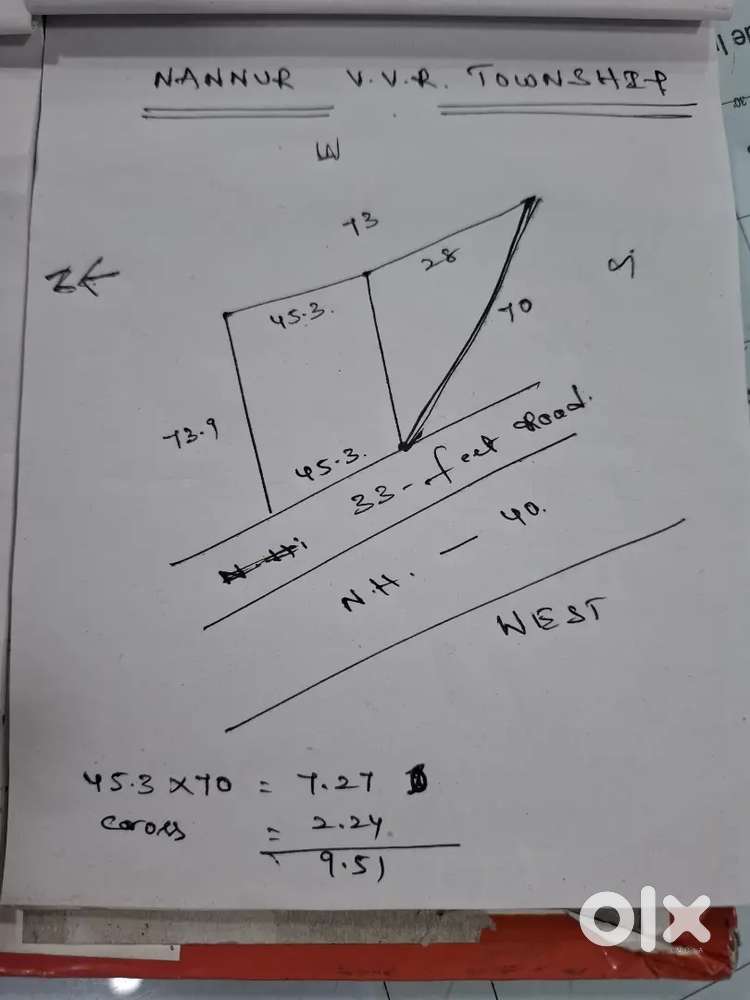 NANNUR V.V.R. TOWNSHIP
73
28
N
S
45.3.
70
73.9
45.3.
33-feet Road.
N.H. — 40.
WEST
45.3 x 70 = 7.27
Coross = 2.24
9.51
olx